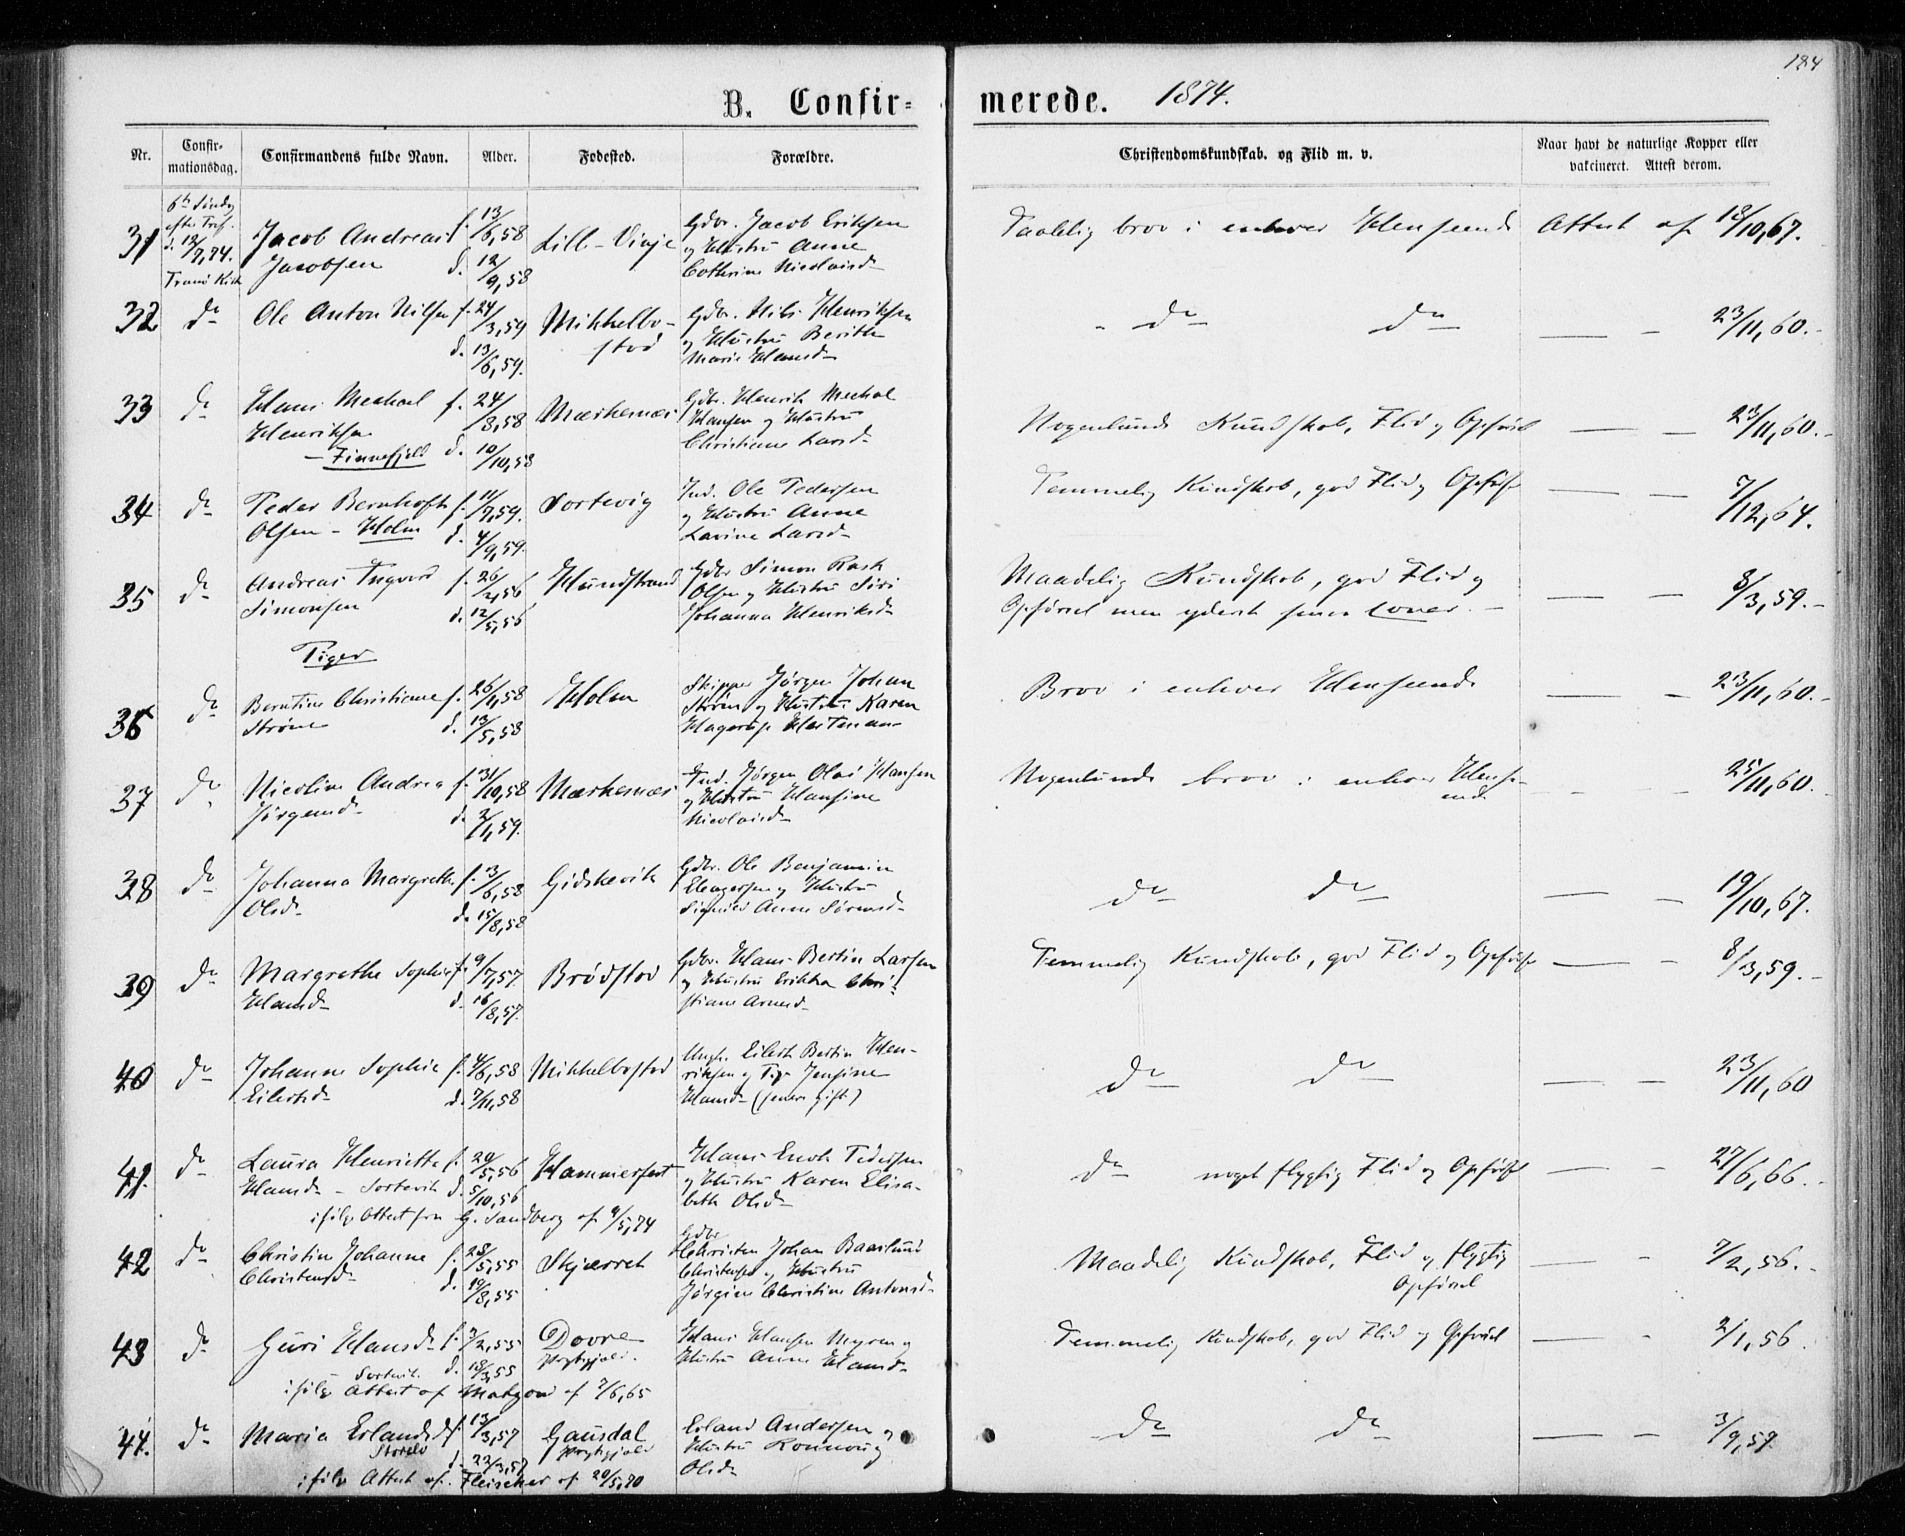 184
B. Confir-
merede. 1874.
Nr.
Confir-
mationsdag.
Confirmandens fulde Navn.
Alder.
Fødested.
Forældre.
Christendomskundskab. og Flid m. v.
Naar havt de naturlige Kopper eller
vakcineret. Attest derom.
6te Søndag
efter Tref.
d. 12/7,74.
31 Jacob Andreas f. 13/6,58 Lill-Vinje Gdbr. Jacob Eriksen
Jacobsen d. 12/9,58 og Hustru Anne
Cathrine Nicolaisd.
Taalelig brav i enhver Henseende Attest af 18/10,67.
32 do Ole Anton Nilsen f. 24/3,59 Mikkelbo- Gdbr. Nils Henriksen
d. 13/6,59. stad og Hustru Berith
Marie Hansd.
do do — — 23/11,60.
33 do Hans Meckal f. 24/8,58 Mærkenæs Gdbr. Henrik Meckal
Henriksen Hansen og Hustru
— Finnefjeld d. 10/10,58 Christiane Larsd.
Nogenlunde Kundskab, Flid og Opførsel — — 23/11,60.
34 do Peder Bernhoft f. 11/7,59. Sortevig Ind. Ole Pedersen
Olsen - Holm d. 4/9,59. og Hustru Anne
Lavine Larsd.
Temmelig Kundskab, god Flid og Opførsel — — 7/12,64.
35 do Andreas Ingvard f. 26/2,56 Hundstrand Gdbr Simon Rask
Simonsen d. 12/5,56 Olsen og Hustru Siri
Johanna Henriksd.
Maadelig Kundskab, god Flid og
Opførsel men yderst — — 8/3,59.
Piger
36 do Berntine Christiane f. 26/1,58 Holm Skipper Jørgen Johan
Strøm d. 13/5,58 Strøm og Hustru Karen
Brav i enhver Henseende — — 23/11,60.
37 do Nicoline Andrea f. 31/10,58 Mærkenæs Ind. Jørgen Olai Hansen
Jørgensd. d. 2/1,59. og Hustru Hansine
Nicolaisd.
Nogenlunde brav i enhver Hense-
ende - - 25/11,60.
38 do Johanna Margrethe f. 3/6,58 Gidskevik Gdbr. Ole Benjamin
Olsd. d. 15/8,58 og Hustru
Anne Sørensd.
do do — — 19/10,67.
39 do Margrethe Sophie f. 9/7,57. Brødstad Gdbr. Hans Bertin Larsen
Hansd. d. 16/8,57. og Hustru Erikka Chri-
stiane Arnesd.
Temmelig Kundskab, god Flid og Opførsel — — 8/3,59.
40 do Johanne Sophie f. 4/6,58 Mikkelbostad Ungk. Eilert Bertin Hen-
Eilertsd. d. 7/11,58 riksen og Pige Jensine
Hansd. (senere gift)
do do — — 23/11,60
41. do Laura Henriette f. 20/5,56 Hammerfest Hans Enok Pedersen
Hansd. - Sortevik d. 5/10,56 og Hustru Karen Elisa-
beth Olsd.
ifølge Attest fra G. Sandberg af 9/5,74
do noget flygtig Flid og Opførsel — — 27/6,66.
42 do Christine Johanne f. 28/5,55 Skjærret Gdbr
Christensd. d. 19/8,55 Christen Johan Baarlund
Christensen og Hustru
Jørgine Christine Antonsd.
Maadelig Kundskab, Flid og flygtig
Opførsel — — 7/2,56.
43 do Guri Hansd. f. 3/2,55 Dovre Hans Hansen Myren og
Sortevik d. 18/3,55 Prgtgjeld. Hustru Anne Hansd.
ifølge Attest af af 7/6,65
Temmelig Kundskab, god Flid og Opførsel — — 2/1,56.
44. do Maria Erlandsd. f. 13/3,57 Gausdal Erland Andersen og
d. 22/3,57 Prgtgjeld Hustru Rønnoug
Olsd.
ifølge Attest af Fleischer af 20/5,70
do do — — 3/9,59.